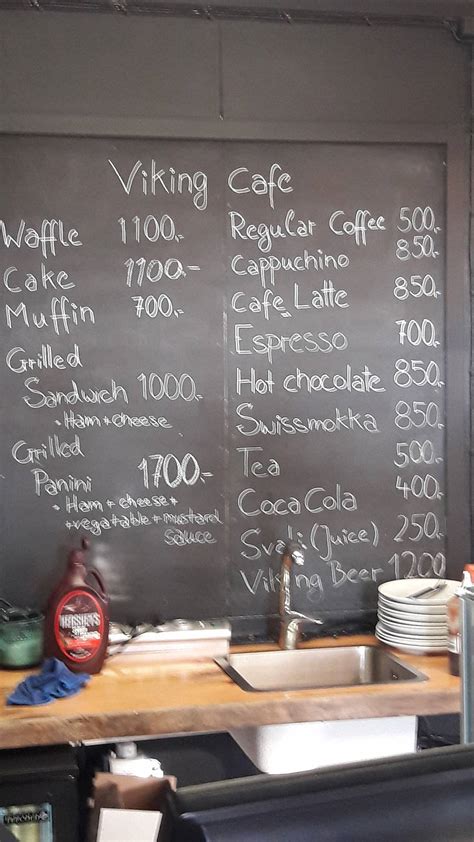 Viking Cafe
Waffle 1100,-
Cake 1100,-
Muffin 700,-
Grilled
Sandwich 1000,-
• Ham + cheese
Grilled
Panini 1700,-
• Ham + cheese +
+ vegatable + mustard
sauce
Regular Coffee 500,-
Cappuchino 850,-
Cafe Latte 850,-
Espresso 700,-
Hot chocolate 850,-
Swissmokka 850,-
Tea 500,-
Coca Cola 400,-
Svali (Juice) 250,-
Viking Beer 1200
HERSHEY'S